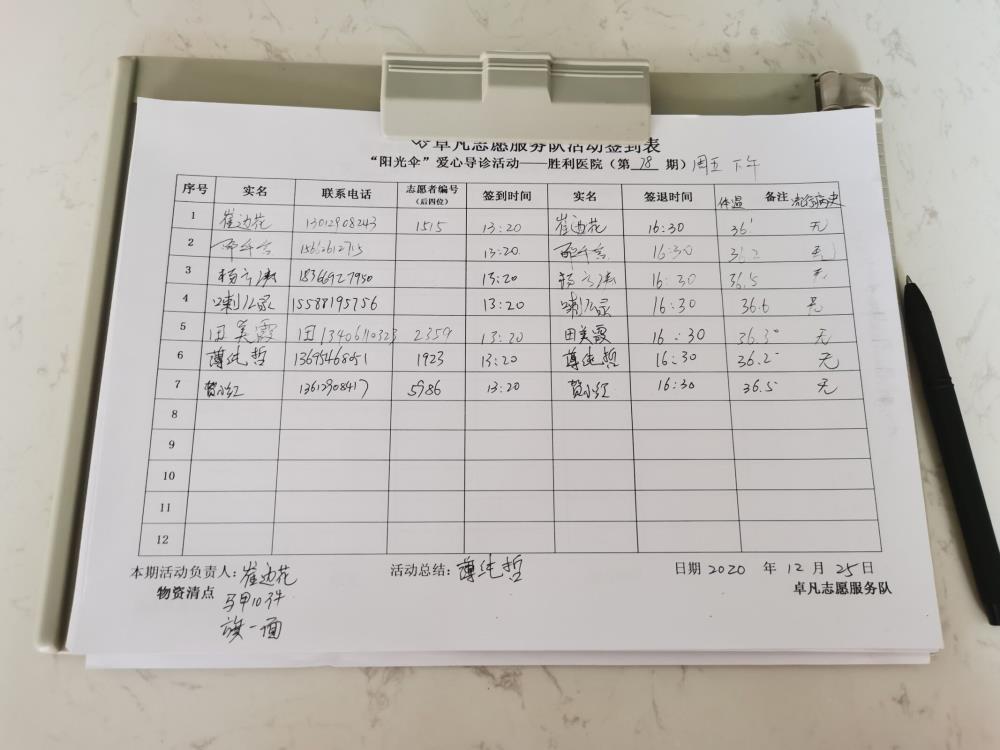 卓凡志愿服务队活动签到表
“阳光伞”爱心导诊活动——胜利医院（第 78 期）周五 下午
序号 实名 联系电话 志愿者编号（后四位） 签到时间 实名 签退时间 体温 备注 流行病史
1 崔边花 13012908243 1515 13:20 崔边花 16:30 36 无
2 13:20 16:30 36.2 无
3 13:20 16:30 36.5 无
4 15588195756 13:20 16:30 36.6 无
5 田美霞 田13406110323 2359 13:20 田美霞 16:30 36.3 无
6 薄纯哲 13695468051 1923 13:20 薄纯哲 16:30 36.2 无
7 贺小红 5986 13:20 贺小红 16:30 36.5 无
8
9
10
11
12
本期活动负责人：崔边花 活动总结：薄纯哲 日期 2020 年 12 月 25 日
物资清点 马甲10件 卓凡志愿服务队
旗一面